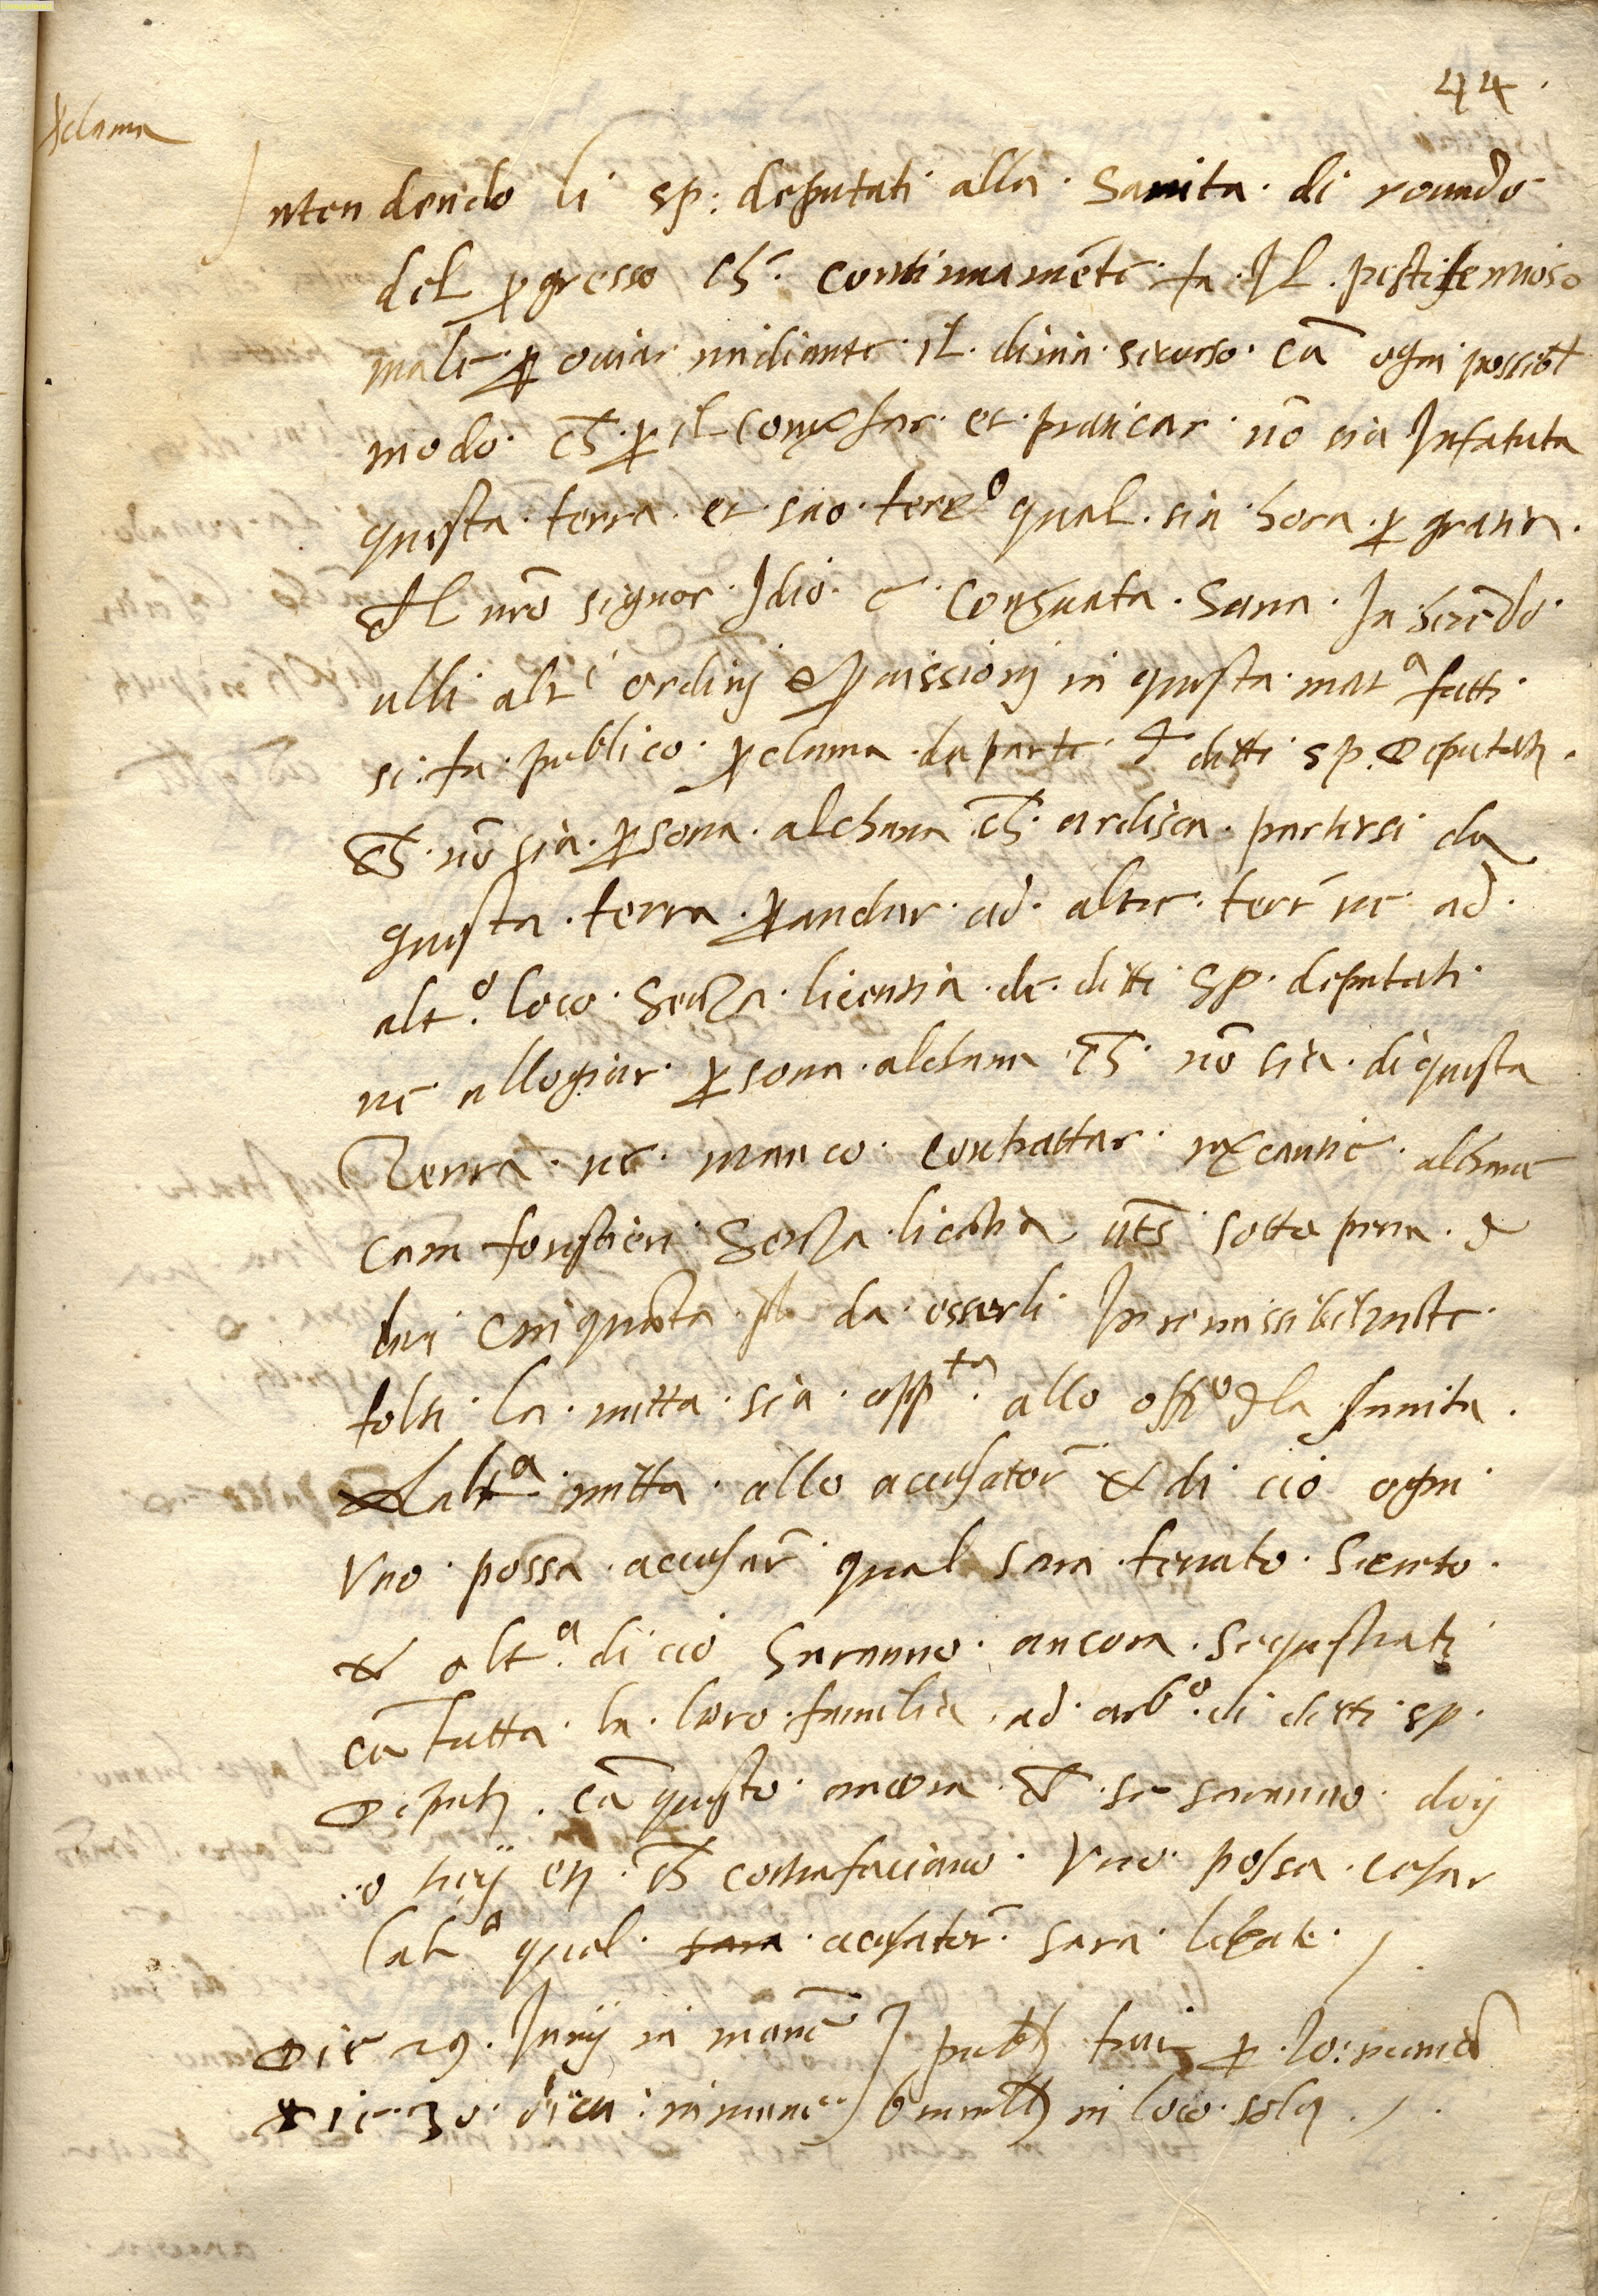 44
pclama
Intendendo li sp: deputati alla sanita di rouado
del pgresso ch. continuamēte fa Il pestifennoso
male p ouiar mediante il diuin sucurso cū ogni possibl
modo ch p il conuersar et praticar nō sia Infatuta
questa terra et suo terro qual sin hora p gratia
del nrō signor Idio e conseruata sana Inherēdo
alli altri ordinj et puissionj in questa mata fatti
si fa publico pclama da parte d ditti sp. deputati
ch nō sia psona alchuna ch ardisca partirsi da
questa terra p andar ad altre terr ne ad
alto. loco senza licentia de ditti sp. deputati
ne allogiar psona alchuna ch nō sia di questa
Terra ne manco contrattar alchuna
cum forestieri senza licētia uts sotto pena d
lire cinquāta pl da esserli Inremissibilmēte
tolti la mitta sia appta. allo offo d la sanita
Lalta mitta allo accusator & di cio ogni
Vno possa accusar qual sara tenuto secreto
& olta. di cio saranno ancora sequestrati
cū tutta la loro familia ad arbo. di ditti sp.
deputi. cū questo ancora ch se saranno doij
o treij etc. ch contrafaciano Vno possa acusar
lalto qual sara acusator sara liberate
Die 29. Junij in mane publi fuit p Jo:
Die 30 dicti in mane in loco solito